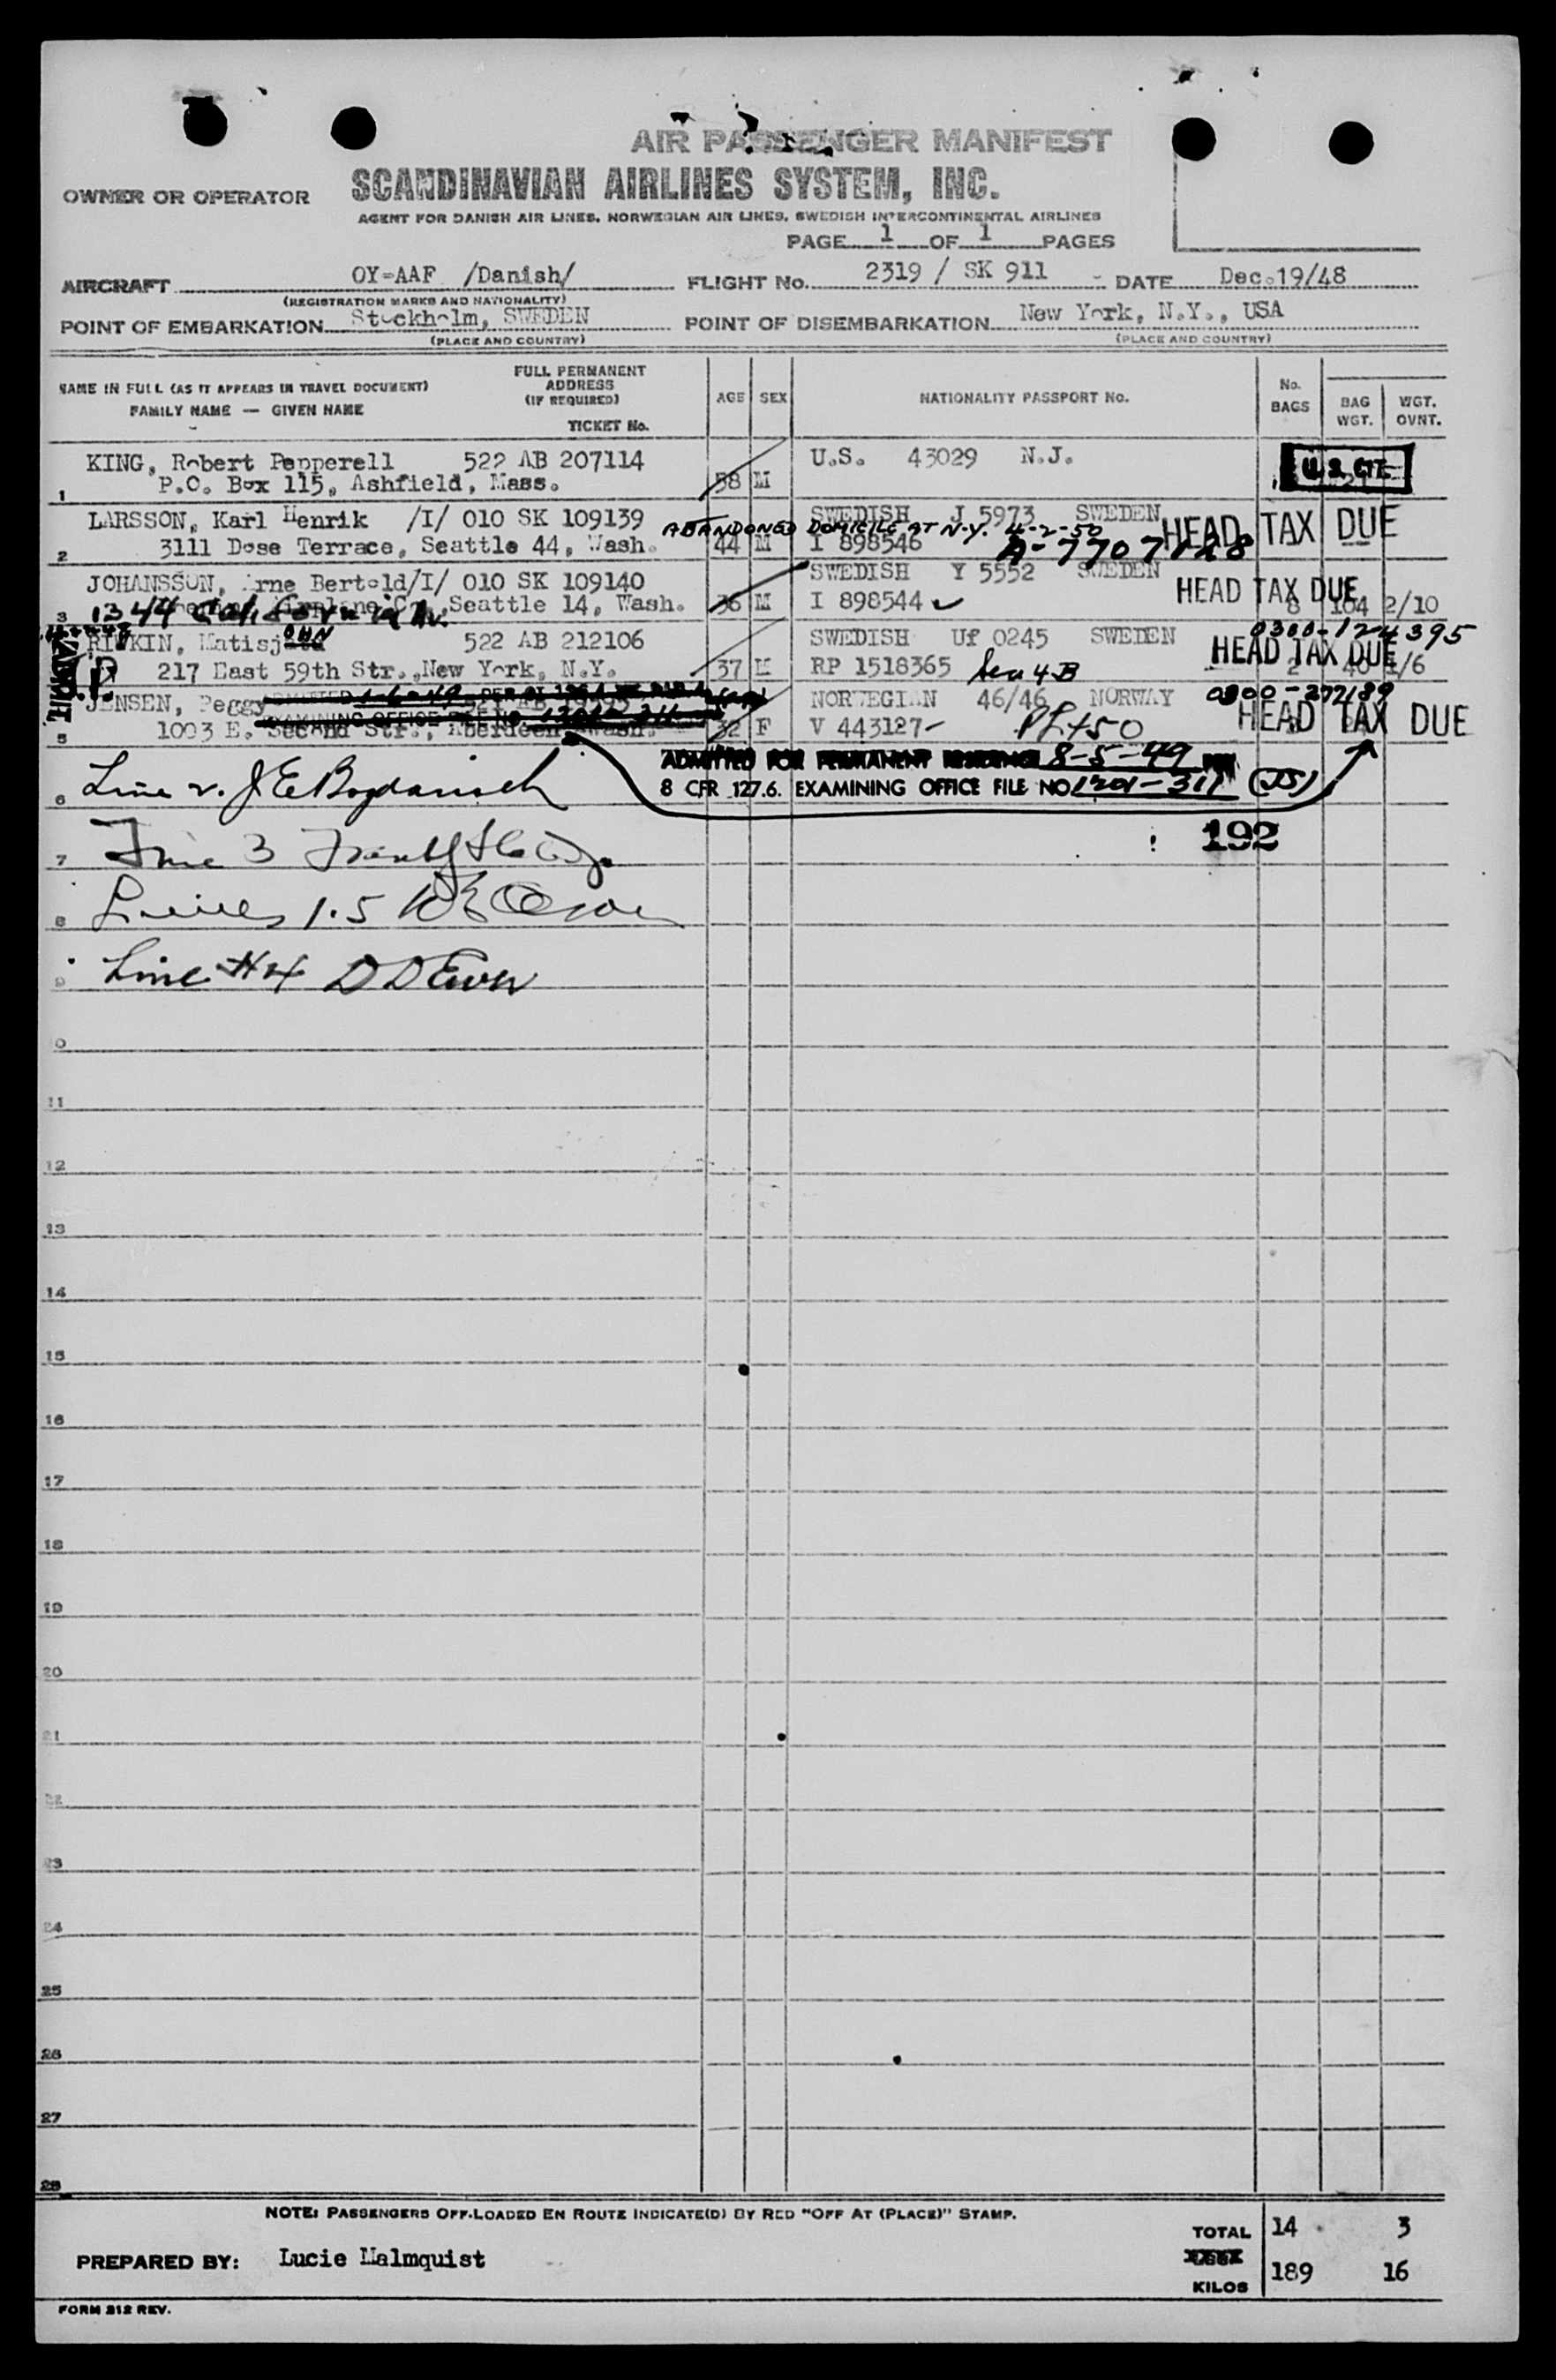 AIR PASSENGER MANIFEST
OWNER OR OPERATOR SCANDINAVIAN AIRLINES SYSTEM, INC.
AGENT FOR DANISH AIR LINES, NORWEGIAN AIR LINES, SWEDISH INTERCONTINENTAL AIRLINES
PAGE 1 OF 1 PAGES
AIRCRAFT OY-AAF /Danish/ FLIGHT No. 2319 / SK 911 - DATE Dec.19/48
(REGISTRATION MARKS AND NATIONALITY)
POINT OF EMBARKATION Stockholm, SWEDEN POINT OF DISEMBARKATION New York, N.Y., USA
(PLACE AND COUNTRY) (PLACE AND COUNTRY)
NAME IN FULL (AS IT APPEARS IN TRAVEL DOCUMENT)
FAMILY NAME — GIVEN NAME
FULL PERMANENT
ADDRESS
(IF REQUIRED)
TICKET No.
AGE SEX NATIONALITY PASSPORT No.
No.
BAGS
BAG
WGT.
WGT.
OVNT.
KING, Robert Pepperell 522 AB 207114 U.S. 43029 N.J. U.S. CIT.
1 P.O. Box 115, Ashfield, Mass. 58 M
LARSSON, Karl Henrik /I/ 010 SK 109139 SWEDISH J 5973 SWEDEN HEAD TAX DUE
ABANDONED DOMICILE AT N.Y. 4-2-50
2 3111 Dose Terrace, Seattle 44, Wash. 44 M I 898546 A-7707128
JOHANSSON, Arne Bertold/I/ 010 SK 109140 SWEDISH Y 5552 SWEDEN HEAD TAX DUE
3 1344 California Av. Seattle 14, Wash. 36 M I 898544 8 104 2/10
0300-124395
RIVKIN, Matisjohn 522 AB 212106 SWEDISH Uf 0245 SWEDEN HEAD TAX DUE
217 East 59th Str., New York, N.Y. 37 M RP 1518365 Sec 4 B 2 40 1/6
JENSEN, Peggy NORWEGIAN 46/46 NORWAY 0300-272189
5 1003 E. Second Str., Aberdeen, Wash. 32 F V 443127 HEAD TAX DUE
ADMITTED FOR PERMANENT RESIDENCE 8-5-49
8 CFR 127.6. EXAMINING OFFICE FILE NO 1201-311 (JS)
6 Line 2. J E Bogdanich
192
7 Line 3
8 Lines 1.5
9 Line #4 D D Ewen
0
11
12
13
14
15
16
17
18
19
20
21
22
23
24
25
26
27
28
NOTE: PASSENGERS OFF-LOADED EN ROUTE INDICATE(D) BY RED "OFF AT (PLACE)" STAMP.
TOTAL 14 3
PREPARED BY: Lucie Malmquist
KILOS 189 16
FORM 212 REV.